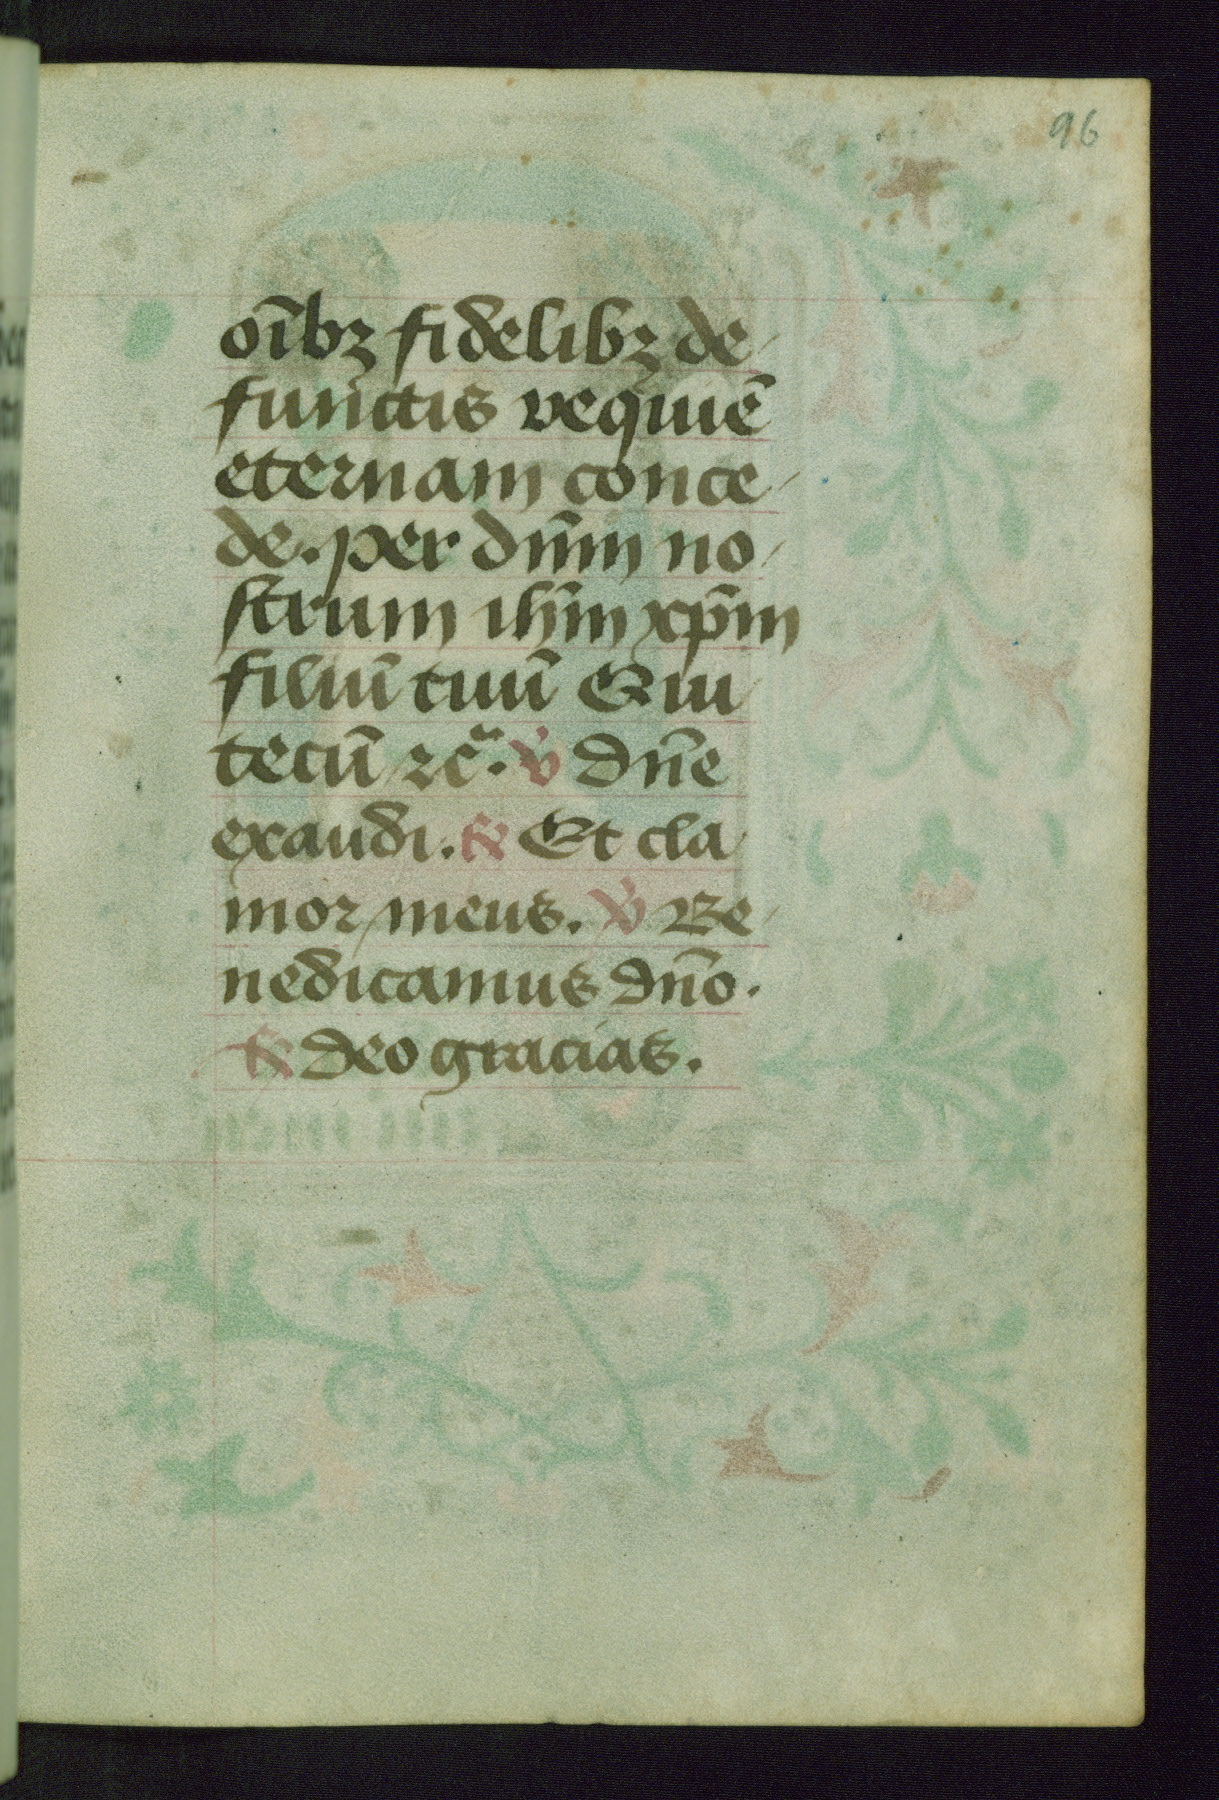 96
oi̅bꝫ fidelibꝫ de-
functis requiē
eternam conce-
de. per dn̄m no-
strum ihm̄ xp̄m
filiū tuū Qui
tecū ⁊cͣ. ℣ dn̄e
exaudi. ℟ Et cla-
mor meus. ℣ Be-
nedicamus dn̄o.
℟ deo gracias.